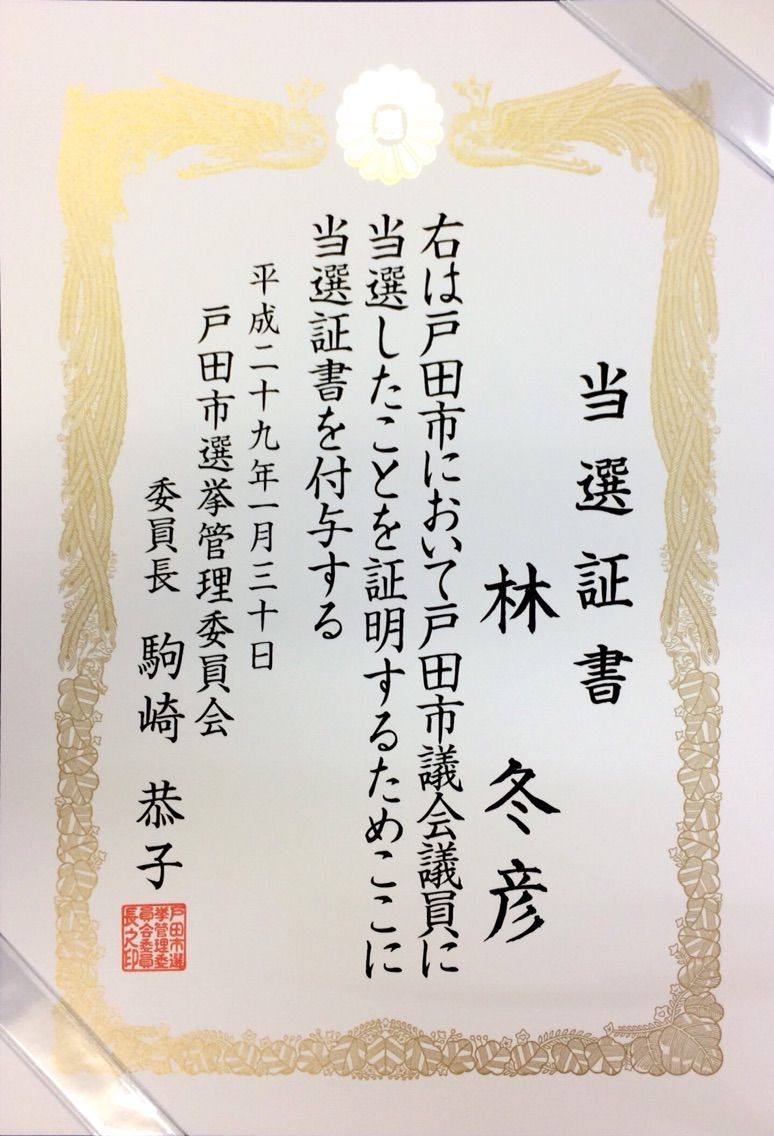 当選証書
林 冬彦
右は戸田市において戸田市議会議員に
当選したことを証明するためここに
当選証書を付与する
平成二十九年一月三十日
戸田市選挙管理委員会
委員長 駒崎 恭子
戸田市選
挙管理委
員会委員
長之印